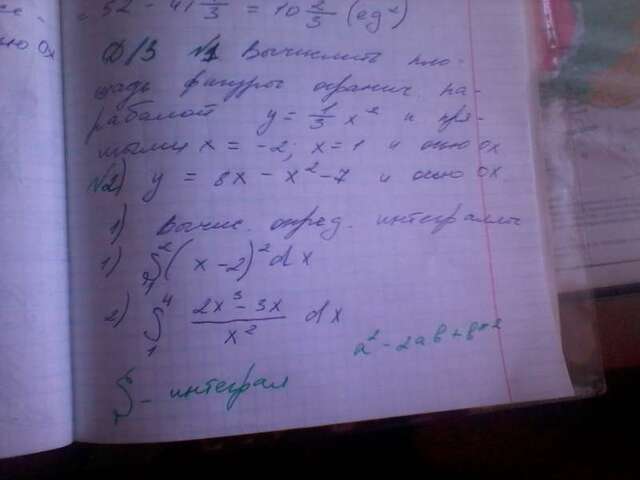 = 52 - 41 1/3 = 10 2/3 (ед²)
Д/З №1 Вычислить пло-
щадь фигуры огранич. па-
раболой y = 1/3 x² и пря-
мыми x = -2; x = 1 и осью ox
№2) y = 8x - x² - 7 и осью ox
1) Вычис. опред. интегралы
1) ∫ ² (x - 2)² dx
2) ∫₁⁴ (2x³ - 3x)/x² dx
a² - 2ab + b²
∫ - интеграл